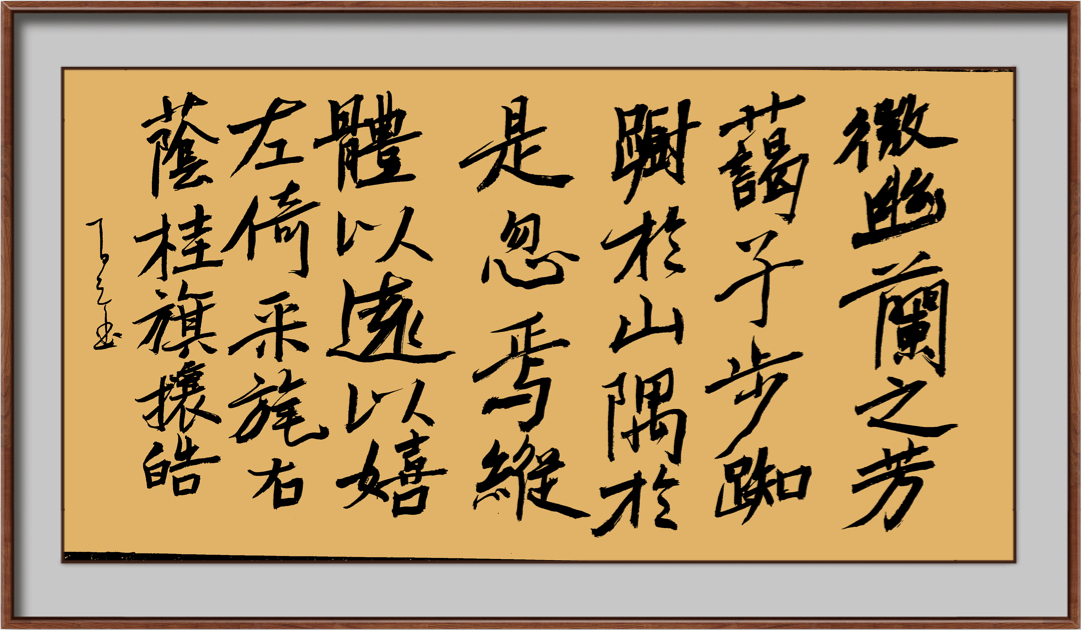 微幽蘭之芳
藹子步踟
躕於山隅於
是忽焉縱
體以遠以嬉
左倚采旄右
蔭桂旗攘皓